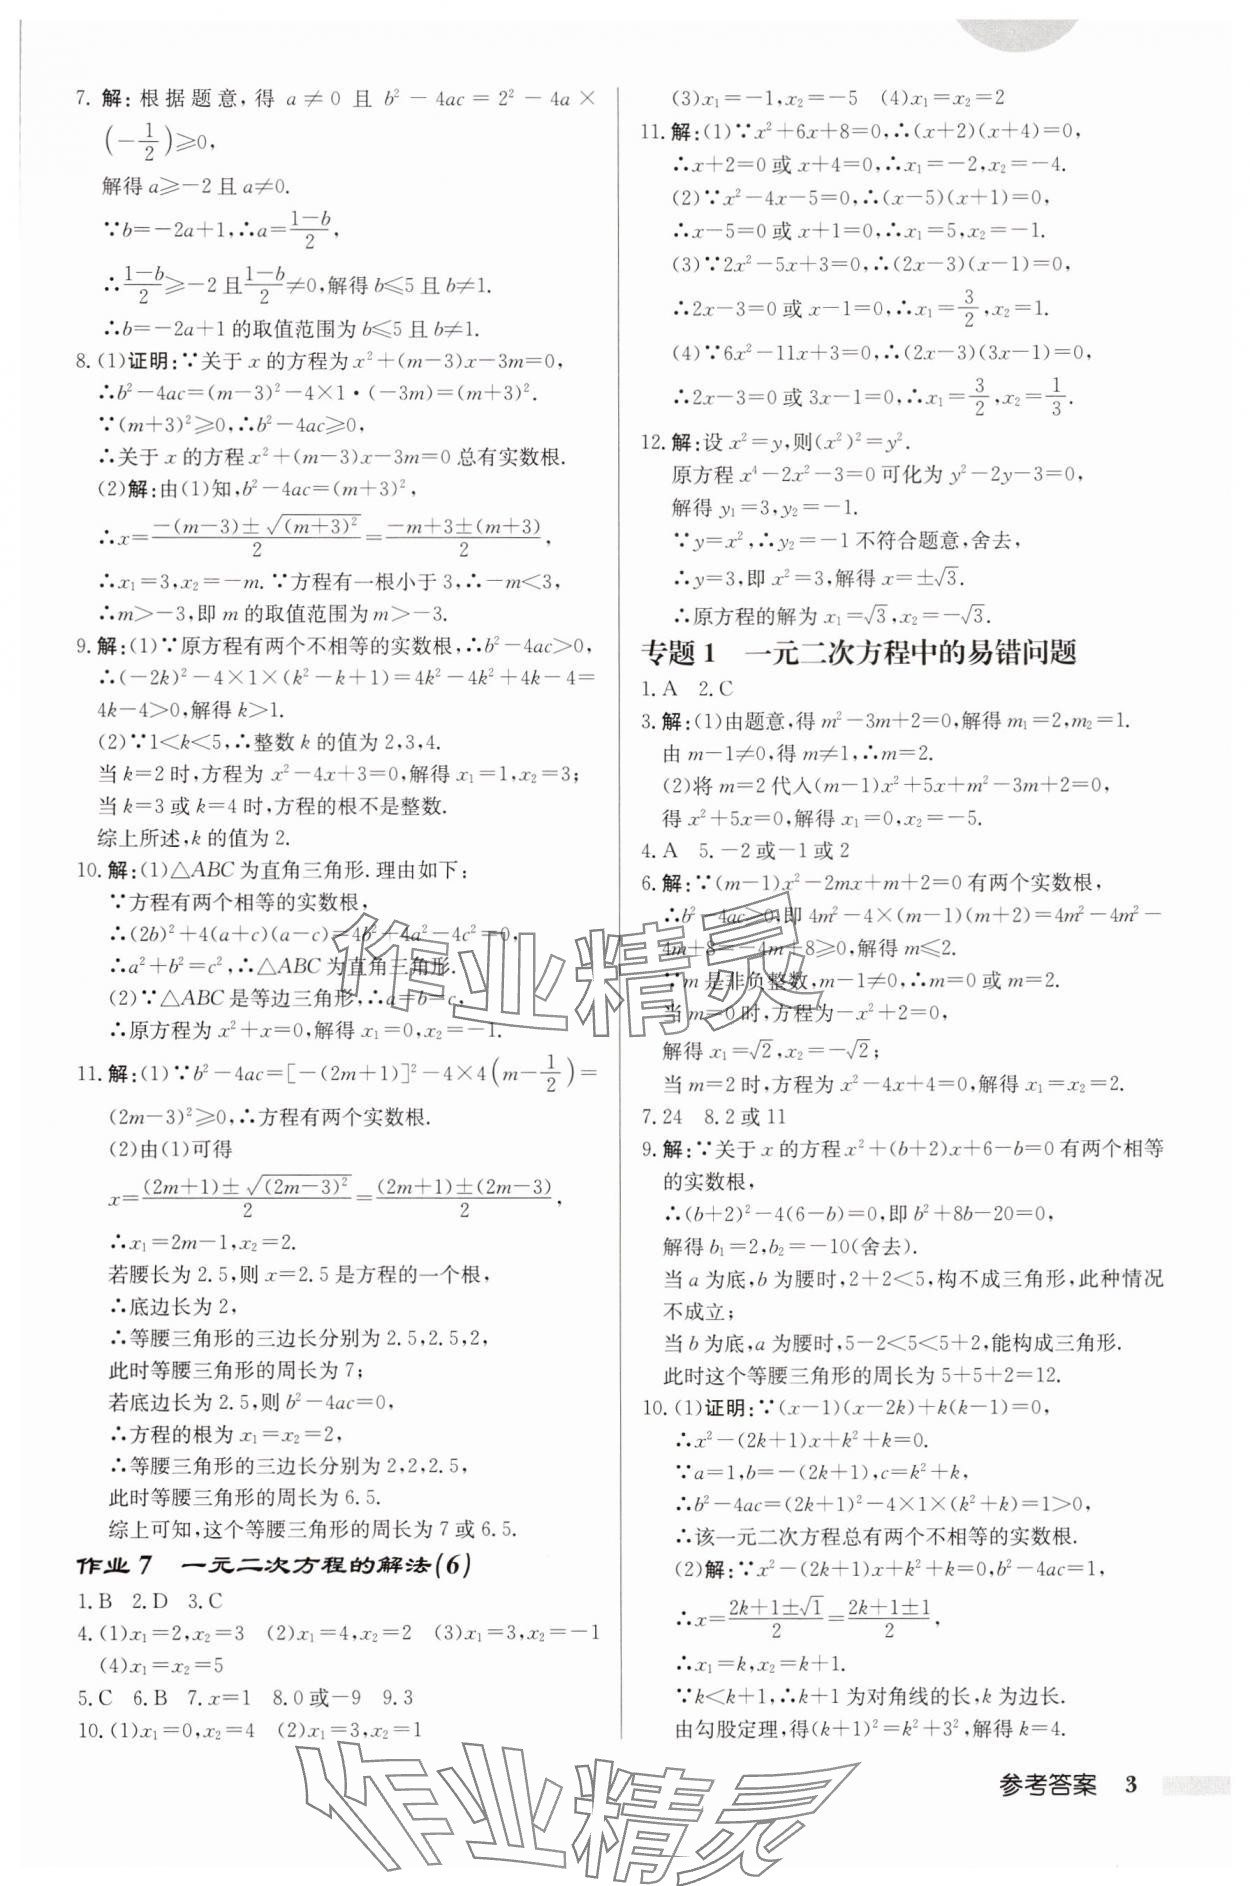 7. 解:根据题意,得 a≠0 且 b²-4ac=2²-4a×
(-1/2)≥0,
解得 a≥-2 且 a≠0.
∵b=-2a+1,∴a=(1-b)/2,
∴(1-b)/2≥-2 且(1-b)/2≠0,解得 b≤5 且 b≠1.
∴b=-2a+1 的取值范围为 b≤5 且 b≠1.
8. (1)证明:∵关于 x 的方程为 x²+(m-3)x-3m=0,
∴b²-4ac=(m-3)²-4×1·(-3m)=(m+3)².
∵(m+3)²≥0,∴b²-4ac≥0,
∴关于 x 的方程 x²+(m-3)x-3m=0 总有实数根.
(2)解:由(1)知,b²-4ac=(m+3)²,
∴x=(-(m-3)±√(m+3)²)/2=(-m+3±(m+3))/2,
∴x₁=3,x₂=-m.∵方程有一根小于 3,∴-m<3,
∴m>-3,即 m 的取值范围为 m>-3.
9. 解:(1)∵原方程有两个不相等的实数根,∴b²-4ac>0,
∴(-2k)²-4×1×(k²-k+1)=4k²-4k²+4k-4=
4k-4>0,解得 k>1.
(2)∵1<k<5,∴整数 k 的值为 2,3,4.
当 k=2 时,方程为 x²-4x+3=0,解得 x₁=1,x₂=3;
当 k=3 或 k=4 时,方程的根不是整数.
综上所述,k 的值为 2.
10. 解:(1)△ABC 为直角三角形.理由如下:
∵方程有两个相等的实数根,
∴(2b)²+4(a+c)(a-c)=4b²+4a²-4c²=0,
∴a²+b²=c²,∴△ABC 为直角三角形.
(2)∵△ABC 是等边三角形,∴a=b=c,
∴原方程为 x²+x=0,解得 x₁=0,x₂=-1.
11. 解:(1)∵b²-4ac=[-(2m+1)]²-4×4(m-1/2)=
(2m-3)²≥0,∴方程有两个实数根.
(2)由(1)可得
x=((2m+1)±√(2m-3)²)/2=((2m+1)±(2m-3))/2,
∴x₁=2m-1,x₂=2.
若腰长为 2.5,则 x=2.5 是方程的一个根,
∴底边长为 2,
∴等腰三角形的三边长分别为 2.5,2.5,2,
此时等腰三角形的周长为 7;
若底边长为 2.5,则 b²-4ac=0,
∴方程的根为 x₁=x₂=2,
∴等腰三角形的三边长分别为 2,2,2.5,
此时等腰三角形的周长为 6.5.
综上可知,这个等腰三角形的周长为 7 或 6.5.
作业 7 一元二次方程的解法(6)
1. B 2. D 3. C
4. (1)x₁=2,x₂=3 (2)x₁=4,x₂=2 (3)x₁=3,x₂=-1
(4)x₁=x₂=5
5. C 6. B 7. x=1 8. 0 或-9 9. 3
10. (1)x₁=0,x₂=4 (2)x₁=3,x₂=1
(3)x₁=-1,x₂=-5 (4)x₁=x₂=2
11. 解:(1)∵x²+6x+8=0,∴(x+2)(x+4)=0,
∴x+2=0 或 x+4=0,∴x₁=-2,x₂=-4.
(2)∵x²-4x-5=0,∴(x-5)(x+1)=0,
∴x-5=0 或 x+1=0,∴x₁=5,x₂=-1.
(3)∵2x²-5x+3=0,∴(2x-3)(x-1)=0,
∴2x-3=0 或 x-1=0,∴x₁=3/2,x₂=1.
(4)∵6x²-11x+3=0,∴(2x-3)(3x-1)=0,
∴2x-3=0 或 3x-1=0,∴x₁=3/2,x₂=1/3.
12. 解:设 x²=y,则(x²)²=y².
原方程 x⁴-2x²-3=0 可化为 y²-2y-3=0,
解得 y₁=3,y₂=-1.
∵y=x²,∴y₂=-1 不符合题意,舍去,
∴y=3,即 x²=3,解得 x=±√3.
∴原方程的解为 x₁=√3,x₂=-√3.
专题 1 一元二次方程中的易错问题
1. A 2. C
3. 解:(1)由题意,得 m²-3m+2=0,解得 m₁=2,m₂=1.
由 m-1≠0,得 m≠1,∴m=2.
(2)将 m=2 代入(m-1)x²+5x+m²-3m+2=0,
得 x²+5x=0,解得 x₁=0,x₂=-5.
4. A 5. -2 或-1 或 2
6. 解:∵(m-1)x²-2mx+m+2=0 有两个实数根,
∴b²-4ac≥0,即 4m²-4×(m-1)(m+2)=4m²-4m²-
4m+8=-4m+8≥0,解得 m≤2.
∵m 是非负整数,m-1≠0,∴m=0 或 m=2.
当 m=0 时,方程为-x²+2=0,
解得 x₁=√2,x₂=-√2;
当 m=2 时,方程为 x²-4x+4=0,解得 x₁=x₂=2.
7. 24 8. 2 或 11
9. 解:∵关于 x 的方程 x²+(b+2)x+6-b=0 有两个相等
的实数根,
∴(b+2)²-4(6-b)=0,即 b²+8b-20=0,
解得 b₁=2,b₂=-10(舍去).
当 a 为底,b 为腰时,2+2<5,构不成三角形,此种情况
不成立;
当 b 为底,a 为腰时,5-2<5<5+2,能构成三角形.
此时这个等腰三角形的周长为 5+5+2=12.
10. (1)证明:∵(x-1)(x-2k)+k(k-1)=0,
∴x²-(2k+1)x+k²+k=0.
∵a=1,b=-(2k+1),c=k²+k,
∴b²-4ac=(2k+1)²-4×1×(k²+k)=1>0,
∴该一元二次方程总有两个不相等的实数根.
(2)解:∵x²-(2k+1)x+k²+k=0,b²-4ac=1,
∴x=(2k+1±√1)/2=(2k+1±1)/2,
∴x₁=k,x₂=k+1.
∵k<k+1,∴k+1 为对角线的长,k 为边长.
由勾股定理,得(k+1)²=k²+3²,解得 k=4.
参考答案 3
作业精灵
作业精灵